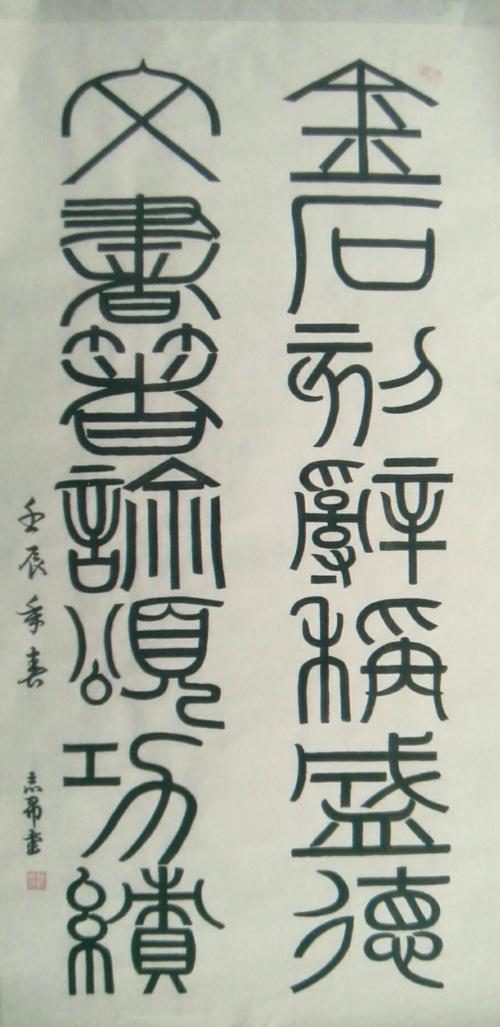 金石刻辭稱盛德
文書著論頌功績
壬辰年春
志昂書